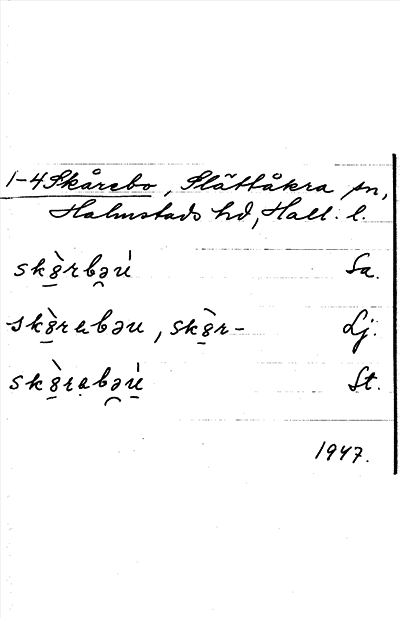 1-4 Skårebo, Slättåkra sn,
Halmstads hd, Hall. l.
sk8̀rbəu Sa.
sk8̀rebəu, sk8̀r- Lj.
sk8̀rebəu St.
1947.